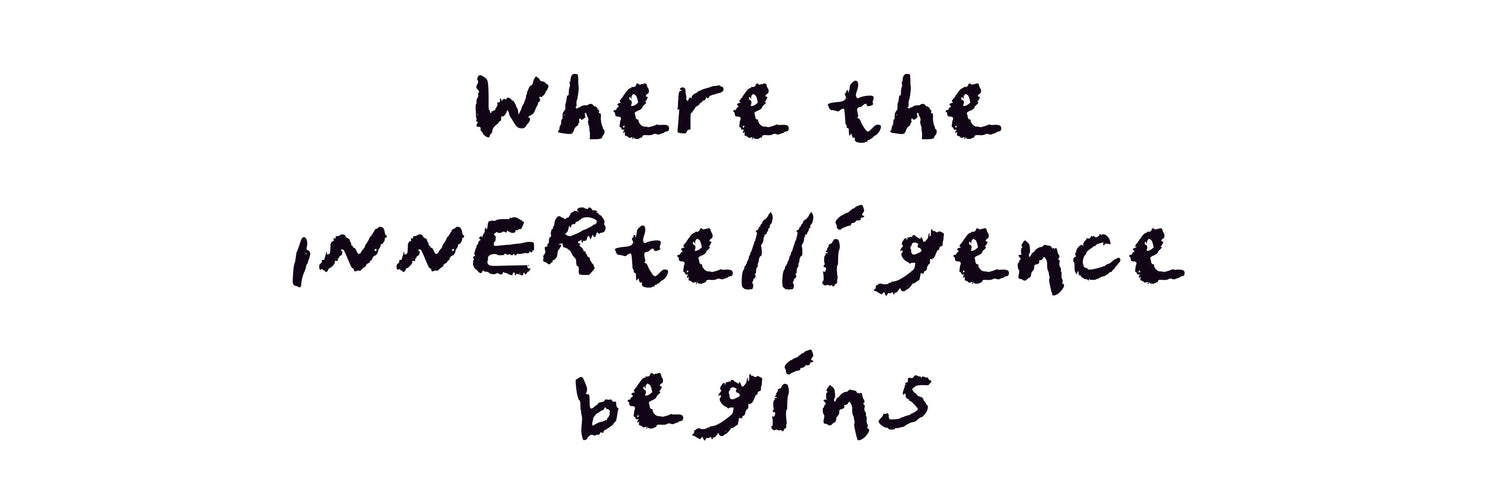 Where the
INNERtelligence
begins